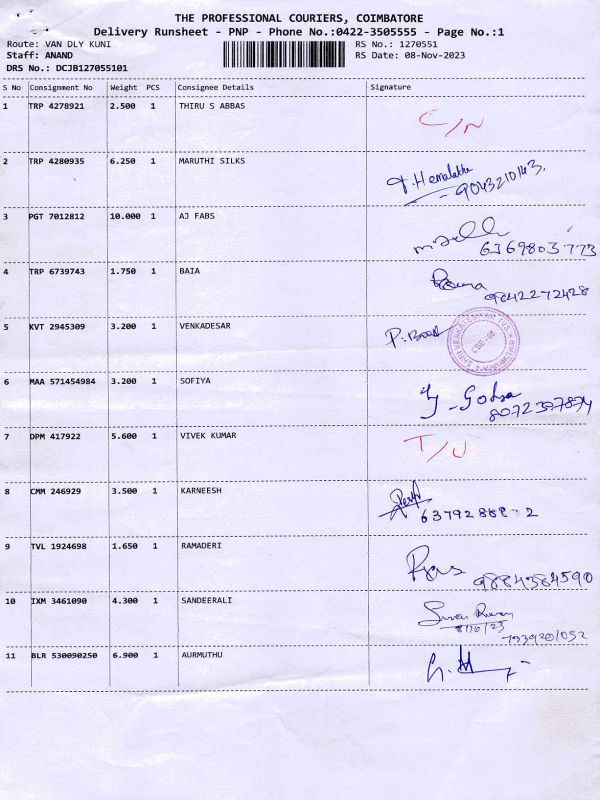 THE PROFESSIONAL COURIERS, COIMBATORE
Delivery Runsheet - PNP - Phone No.:0422-3505555 - Page No.:1
Route: VAN DLY KUNI RS No.: 1270551
Staff: ANAND RS Date: 08-Nov-2023
DRS No.: DCJB127055101
S No Consignment No Weight PCS Consignee Details Signature
1 TRP 4278921 2.500 1 THIRU S ABBAS
C/N
2 TRP 4280935 6.250 1 MARUTHI SILKS
T. Hemalatha
9043210143.
3 PGT 7012812 10.000 1 AJ FABS
6369803773
4 TRP 6739743 1.750 1 BAIA
9842272428
5 KVT 2945309 3.200 1 VENKADESAR
P.
6 MAA 571454984 3.200 1 SOFIYA
8072397874
7 DPM 417922 5.600 1 VIVEK KUMAR
T/U
8 CMM 246929 3.500 1 KARNEESH
9 TVL 1924698 1.650 1 RAMADERI
9884384590
10 IXM 3461090 4.300 1 SANDEERALI
8/16/23
7339201052
11 BLR 530090250 6.900 1 AURMUTHU